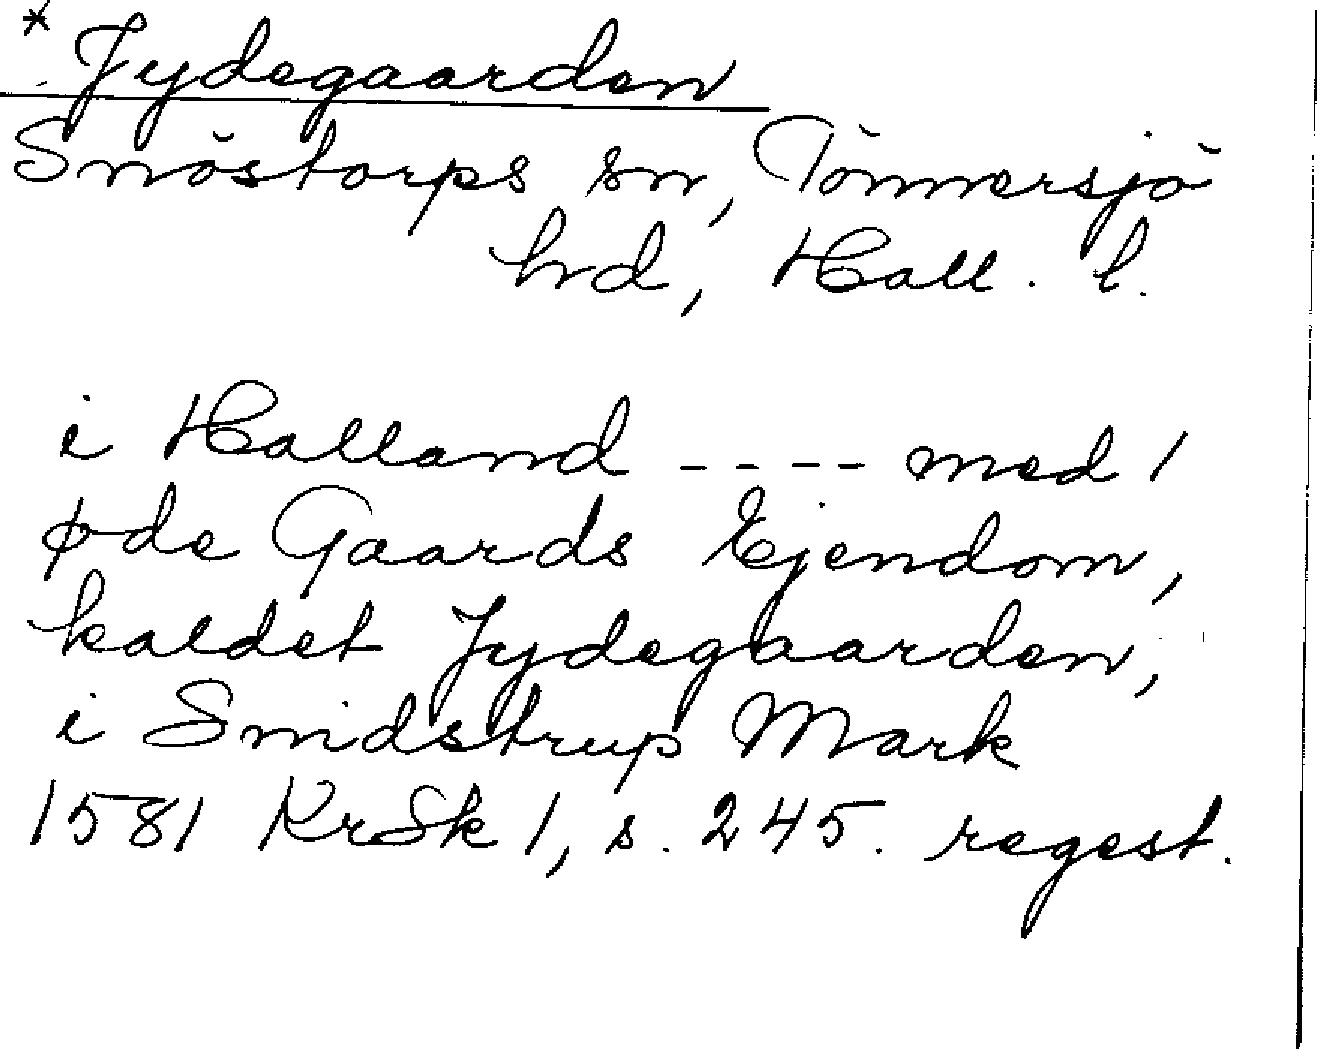 * Jydegaarden
Snöstorps sn, Tönnersjö
hrd, Hall. l.
i Halland ---- med 1
øde Gaards Ejendom,
kaldet Jydegaarden,
i Smidstrup Mark
1581 KrSk 1, s. 245. regest.